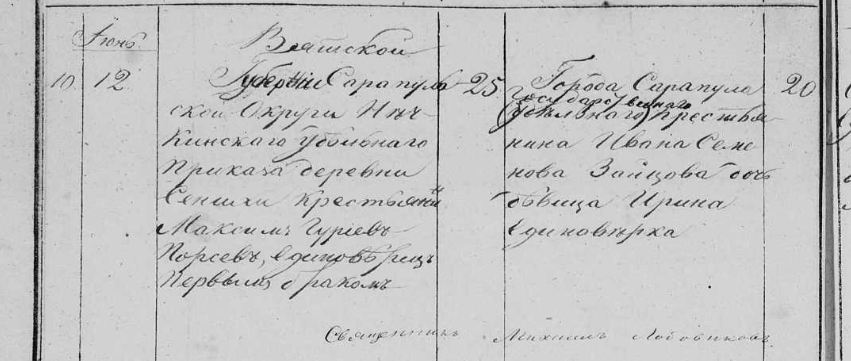 Июнь
Вятской
10 12 Губернии Сарапуль 25
ской Округи Неч-
кинскаго Удѣльнаго
Приказа деревни
крестьянинъ
Максимъ Гуріевъ
Порсевъ, единовѣрецъ
Первымъ бракомъ
Города Сарапула 20
государственнаго
(удѣльнаго) крестья
нина Ивана Семе
нова Зайцова дочь
дѣвица Ирина
единовѣрка
Священникъ Михаилъ